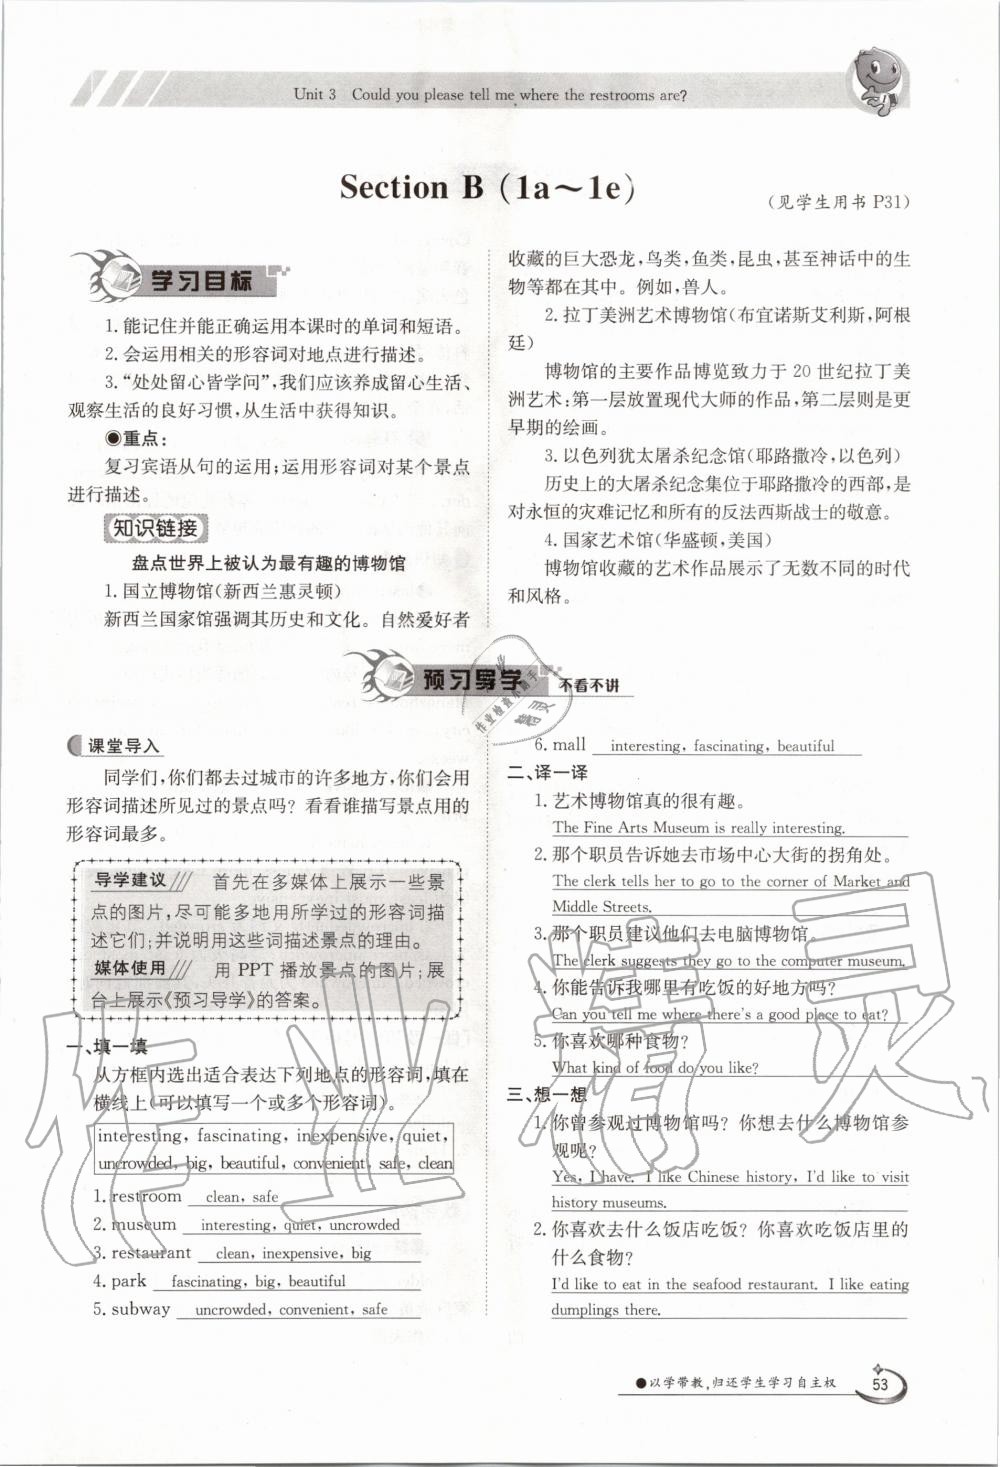 Unit 3 Could you please tell me where the restrooms are?
Section B (1a～1e)
(见学生用书 P31)
学习目标
1. 能记住并能正确运用本课时的单词和短语。
2. 会运用相关的形容词对地点进行描述。
3. “处处留心皆学问”,我们应该养成留心生活、
观察生活的良好习惯,从生活中获得知识。
◉重点:
复习宾语从句的运用;运用形容词对某个景点
进行描述。
知识链接
盘点世界上被认为最有趣的博物馆
1. 国立博物馆(新西兰惠灵顿)
新西兰国家馆强调其历史和文化。自然爱好者
收藏的巨大恐龙,鸟类,鱼类,昆虫,甚至神话中的生
物等都在其中。例如,兽人。
2. 拉丁美洲艺术博物馆(布宜诺斯艾利斯,阿根
廷)
博物馆的主要作品博览致力于 20 世纪拉丁美
洲艺术:第一层放置现代大师的作品,第二层则是更
早期的绘画。
3. 以色列犹太屠杀纪念馆(耶路撒冷,以色列)
历史上的大屠杀纪念集位于耶路撒冷的西部,是
对永恒的灾难记忆和所有的反法西斯战士的敬意。
4. 国家艺术馆(华盛顿,美国)
博物馆收藏的艺术作品展示了无数不同的时代
和风格。
预习导学 不看不讲
课堂导入
同学们,你们都去过城市的许多地方,你们会用
形容词描述所见过的景点吗? 看看谁描写景点用的
形容词最多。
导学建议 首先在多媒体上展示一些景
点的图片,尽可能多地用所学过的形容词描
述它们;并说明用这些词描述景点的理由。
媒体使用 用 PPT 播放景点的图片;展
台上展示《预习导学》的答案。
一、填一填
从方框内选出适合表达下列地点的形容词,填在
横线上(可以填写一个或多个形容词)。
interesting, fascinating, inexpensive, quiet,
uncrowded, big, beautiful, convenient, safe, clean
1. restroom clean, safe
2. museum interesting, quiet, uncrowded
3. restaurant clean, inexpensive, big
4. park fascinating, big, beautiful
5. subway uncrowded, convenient, safe
6. mall interesting, fascinating, beautiful
二、译一译
1. 艺术博物馆真的很有趣。
The Fine Arts Museum is really interesting.
2. 那个职员告诉她去市场中心大街的拐角处。
The clerk tells her to go to the corner of Market and
Middle Streets.
3. 那个职员建议他们去电脑博物馆。
The clerk suggests they go to the computer museum.
4. 你能告诉我哪里有吃饭的好地方吗?
Can you tell me where there's a good place to eat?
5. 你喜欢哪种食物?
What kind of food do you like?
三、想一想
1. 你曾参观过博物馆吗? 你想去什么博物馆参
观呢?
Yes, I have. I like Chinese history, I'd like to visit
history museums.
2. 你喜欢去什么饭店吃饭? 你喜欢吃饭店里的
什么食物?
I'd like to eat in the seafood restaurant. I like eating
dumplings there.
●以学带教,归还学生学习自主权
53
作业精灵